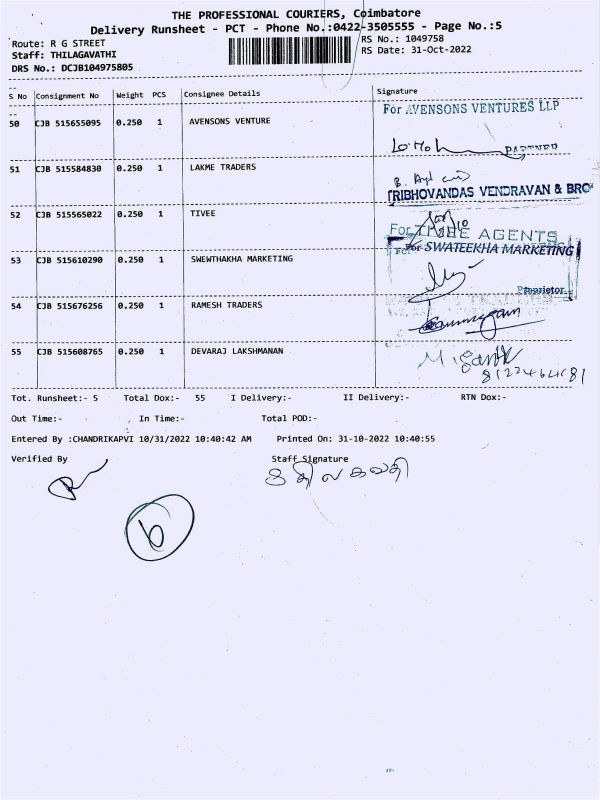 THE PROFESSIONAL COURIERS, Coimbatore
Delivery Runsheet - PCT - Phone No.:0422-3505555 - Page No.:5
Route: R G STREET RS No.: 1049758
Staff: THILAGAVATHI RS Date: 31-Oct-2022
DRS No.: DCJB104975805
S No Consignment No Weight PCS Consignee Details Signature
For AVENSONS VENTURES LLP
50 CJB 515655095 0.250 1 AVENSONS VENTURE
PARTNER
51 CJB 515584830 0.250 1 LAKME TRADERS
TRIBHOVANDAS VENDRAVAN & BRO
52 CJB 515565022 0.250 1 TIVEE
For TIVEE AGENTS
For SWATEEKHA MARKETING
53 CJB 515610290 0.250 1 SWEWTHAKHA MARKETING
Proprietor
54 CJB 515676256 0.250 1 RAMESH TRADERS
55 CJB 515608765 0.250 1 DEVARAJ LAKSHMANAN
Tot. Runsheet:- 5 Total Dox:- 55 I Delivery:- II Delivery:- RTN Dox:-
Out Time:- In Time:- Total POD:-
Entered By :CHANDRIKAPVI 10/31/2022 10:40:42 AM Printed On: 31-10-2022 10:40:55
Verified By Staff Signature
திலகவதி
6